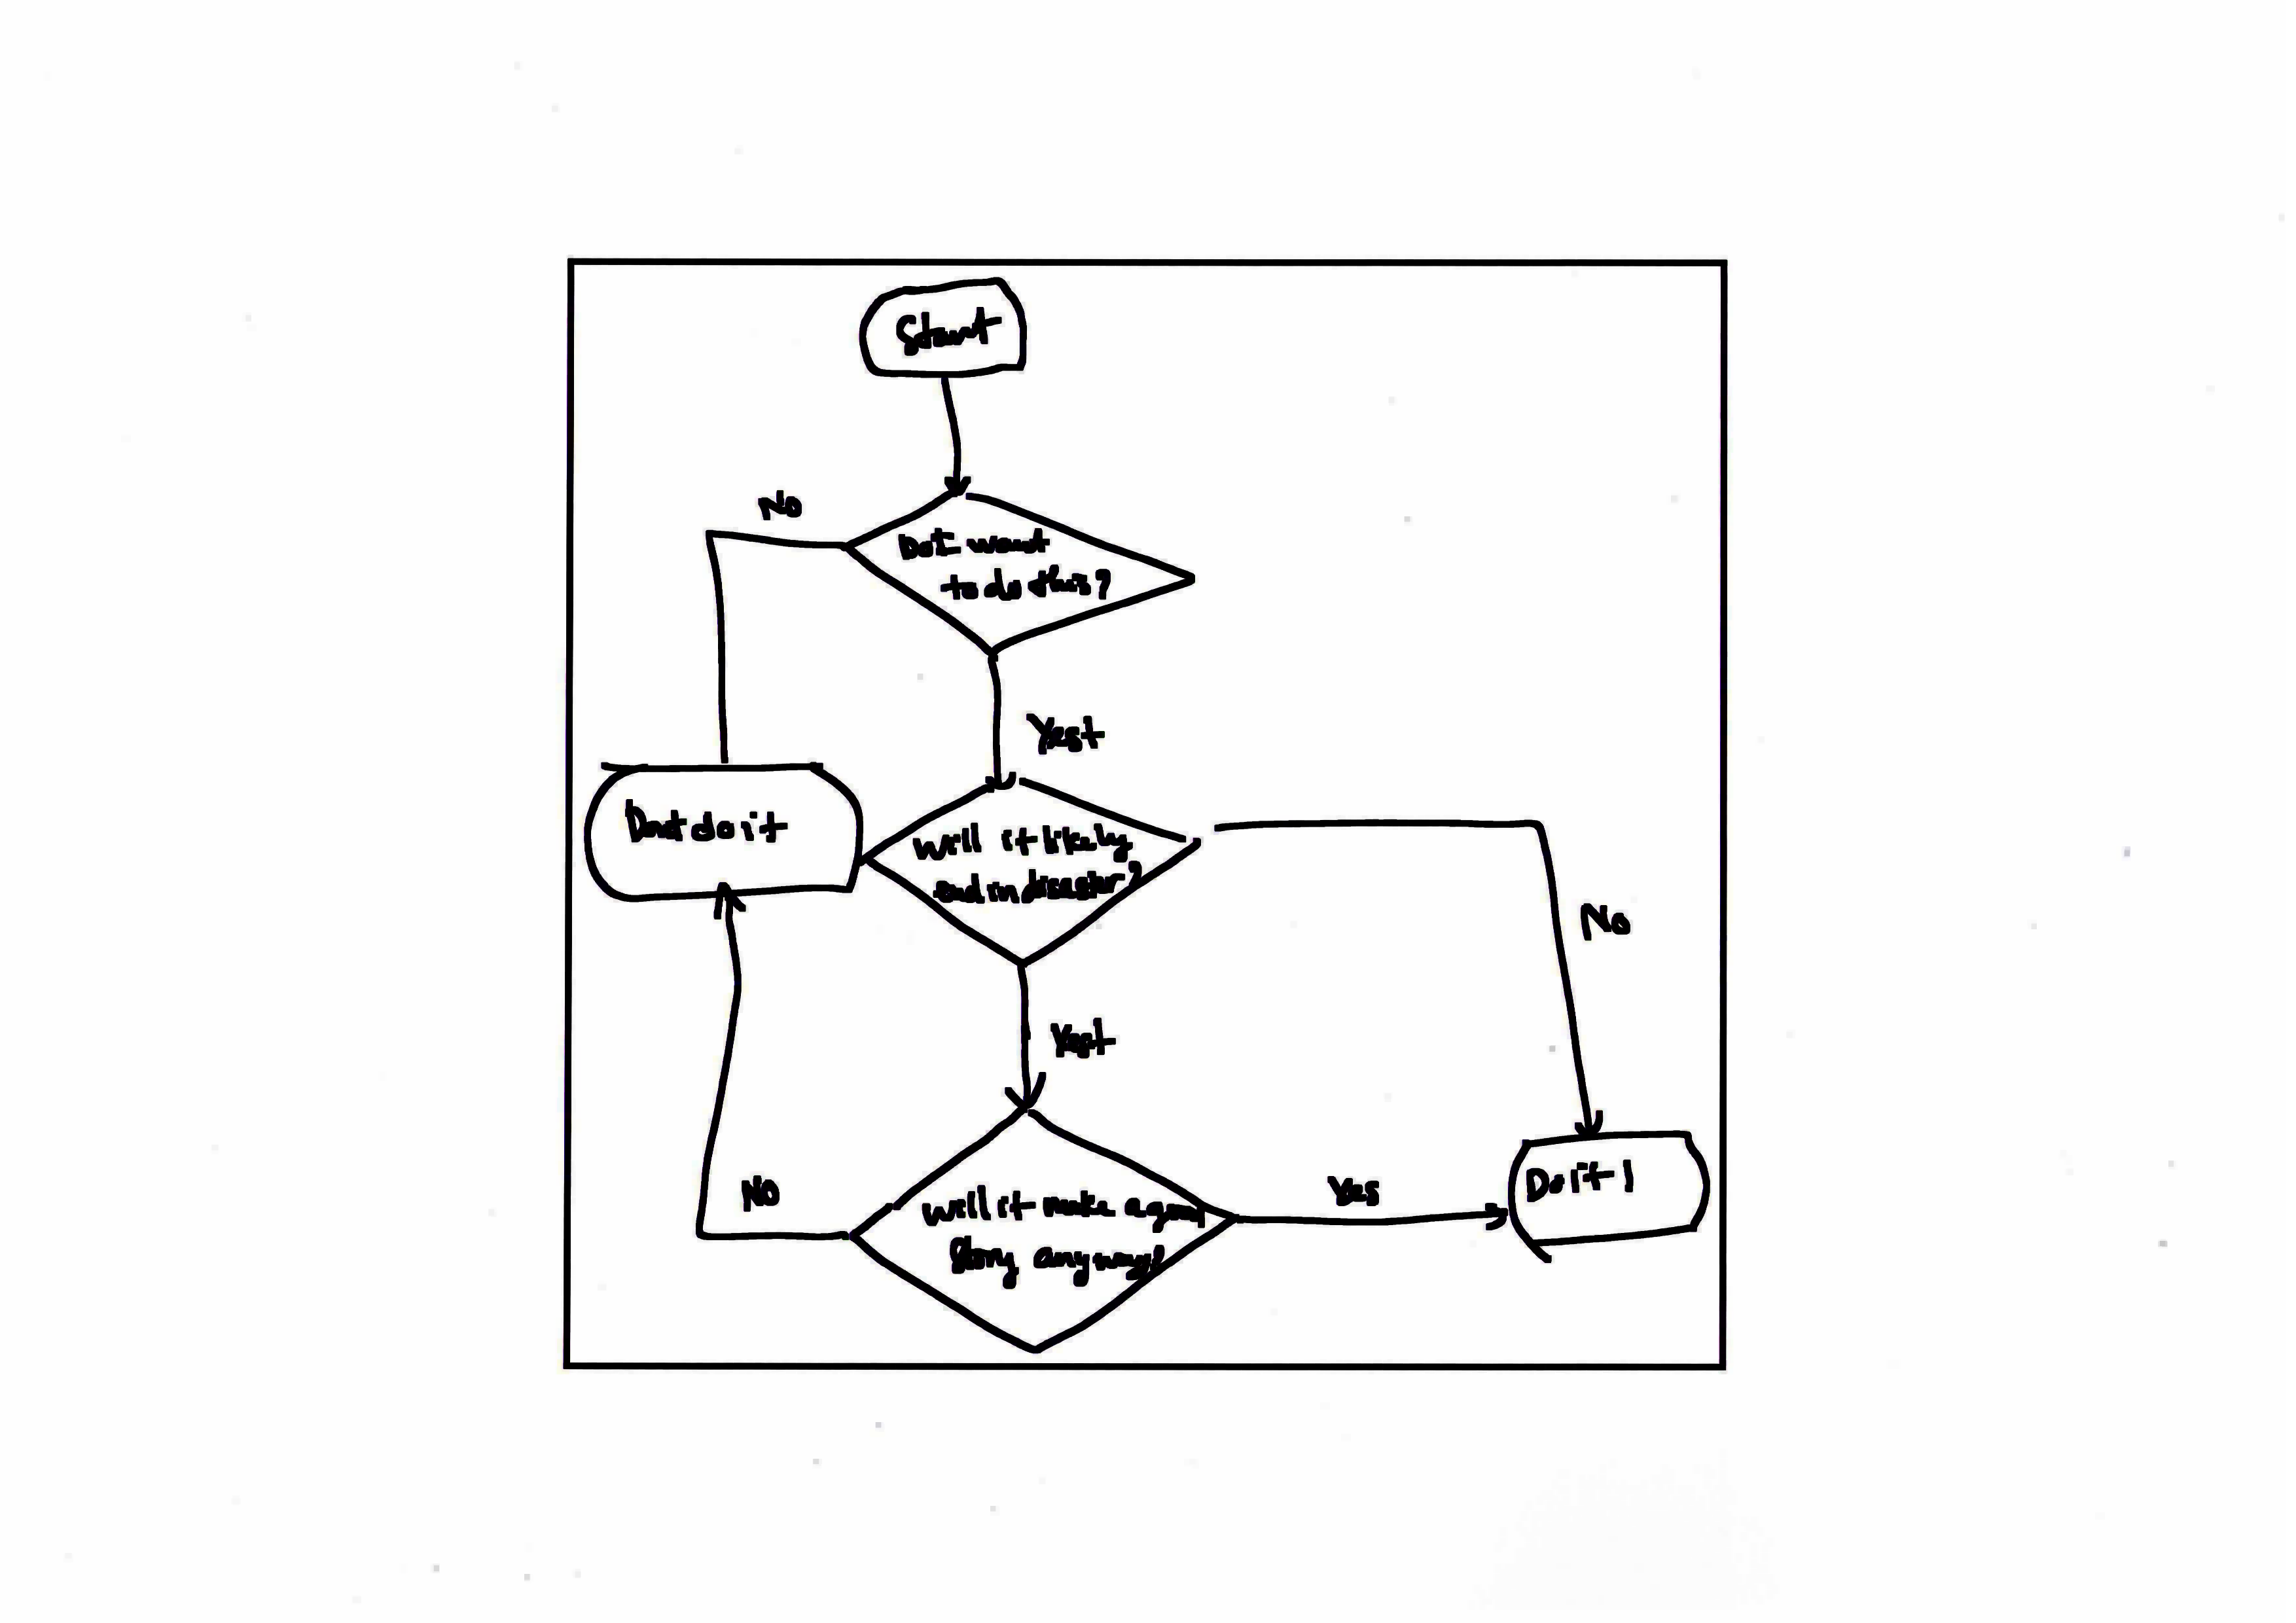 Start
No
Do I want
to do this?
Yest
Dont do it
Will it likely
end in disaster?
No
Yest
No
will it make a good
Story anyway?
Yes
Do it!